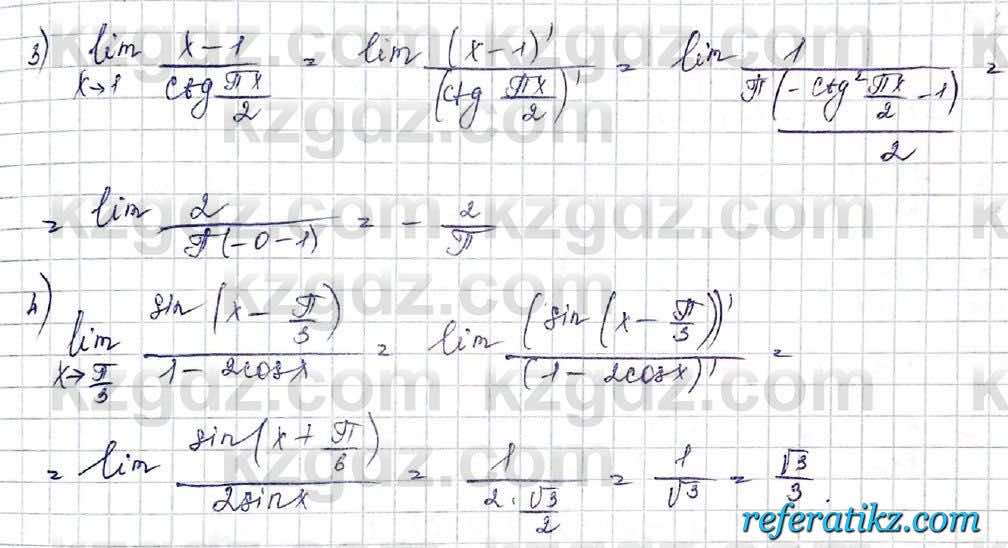 3) lim x→1 (x−1)/(ctg πx/2) = lim (x−1)'/(ctg πx/2)' = lim 1/(π(−ctg² πx/2 −1)/2) =
= lim 2/(π(−0−1)) = − 2/π
4) lim x→π/3 sin(x − π/3)/(1−2cosx) = lim (sin(x − π/3))'/(1−2cosx)' =
= lim sin(x + π/6)/(2sinx) = 1/(2·√3/2) = 1/√3 = √3/3.
kzgdz.com
referatikz.com